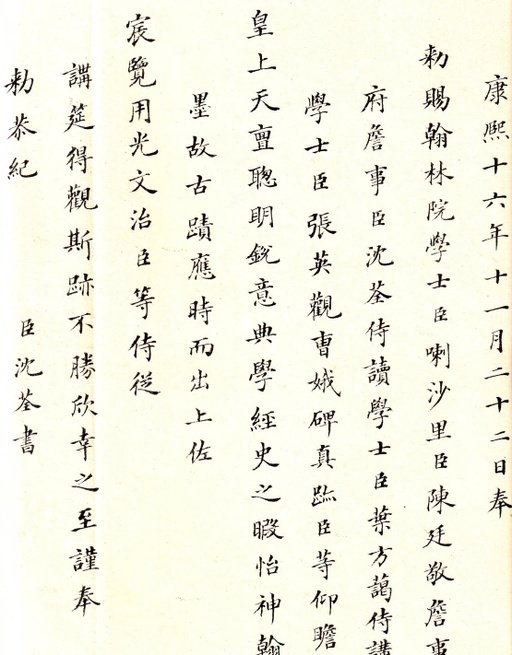 康熙十六年十一月二十二日奉
勑賜翰林院學士臣喇沙里臣陳廷敬詹事
府詹事臣沈荃侍讀學士臣葉方藹侍講
學士臣張英觀曹娥碑真跡臣等仰瞻
皇上天亶聰明銳意典學經史之暇怡神翰
墨故古蹟應時而出上佐
宸覽用光文治臣等侍從
講筵得觀斯跡不勝欣幸之至謹奉
勑恭紀 臣沈荃書